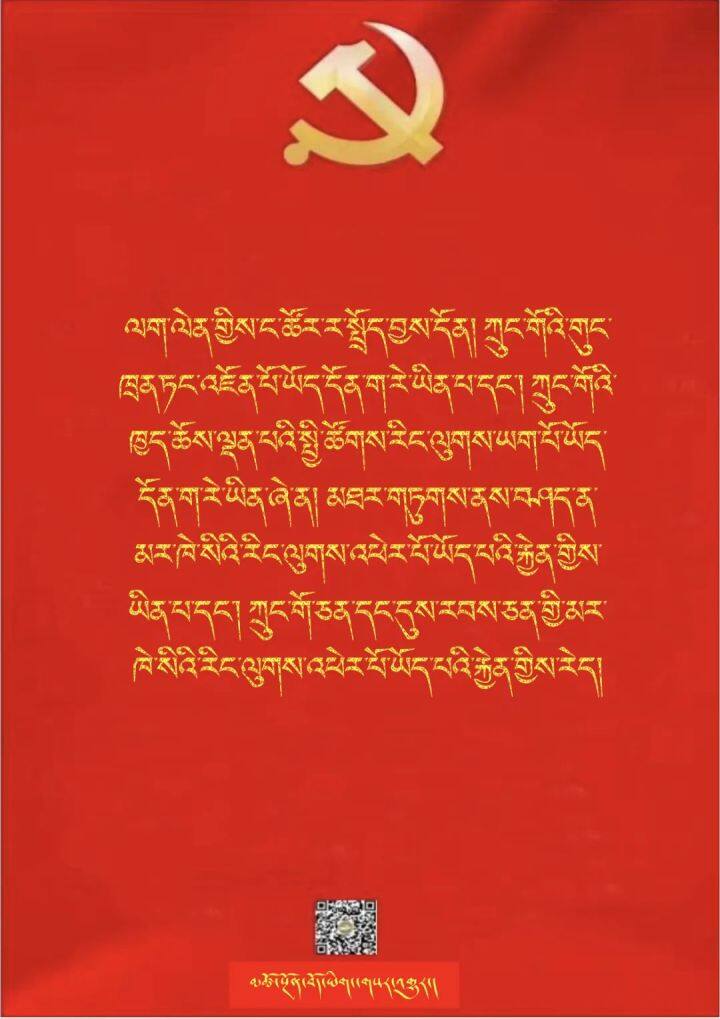 ལག་ལེན་གྱིས་ང་ཚོར་ར་སྤྲོད་བྱས་དོན། ཀྲུང་གོའི་གུང་
ཁྲན་ཏང་འཇོན་པོ་ཡོད་དོན་ག་རེ་ཡིན་པ་དང་། ཀྲུང་གོའི་
ཁྱད་ཆོས་ལྡན་པའི་སྤྱི་ཚོགས་རིང་ལུགས་ཡག་པོ་ཡོད་
དོན་ག་རེ་ཡིན་ཞེ་ན། མཐར་གཏུགས་ནས་བཤད་ན་
མར་ཁེ་སིའི་རིང་ལུགས་འཕེར་པོ་ཡོད་པའི་རྐྱེན་གྱིས་
ཡིན་པ་དང་། ཀྲུང་གོ་ཅན་དང་དུས་རབས་ཅན་གྱི་མར་
ཁེ་སིའི་རིང་ལུགས་འཕེར་པོ་ཡོད་པའི་རྐྱེན་གྱིས་རེད།